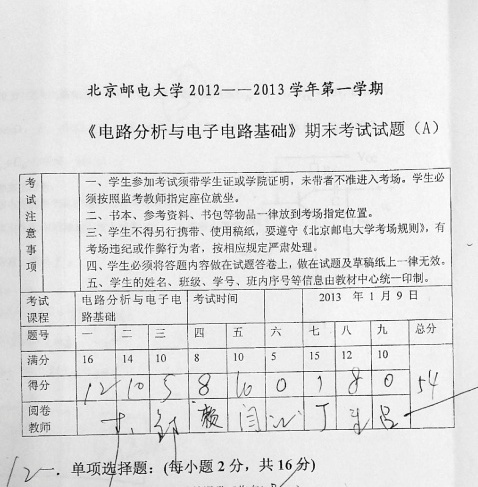 北京邮电大学2012——2013学年第一学期
《电路分析与电子电路基础》期末考试试题（A）
考试注意事项
一、学生参加考试须带学生证或学院证明，未带者不准进入考场。学生必
须按照监考教师指定座位就坐。
二、书本、参考资料、书包等物品一律放到考场指定位置。
三、学生不得另行携带、使用稿纸，要遵守《北京邮电大学考场规则》，有
考场违纪或作弊行为者，按相应规定严肃处理。
四、学生必须将答题内容做在试题答卷上，做在试题及草稿纸上一律无效。
五、学生的姓名、班级、学号、班内序号等信息由教材中心统一印制。
考试课程 电路分析与电子电路基础 考试时间 2013 年 1 月 9 日
题号 一 二 三 四 五 六 七 八 九 总分
满分 16 14 10 8 10 5 15 12 10
得分 12 10 5 8 10 0 1 8 0 54
阅卷教师
12 一. 单项选择题：(每小题 2 分，共 16 分)